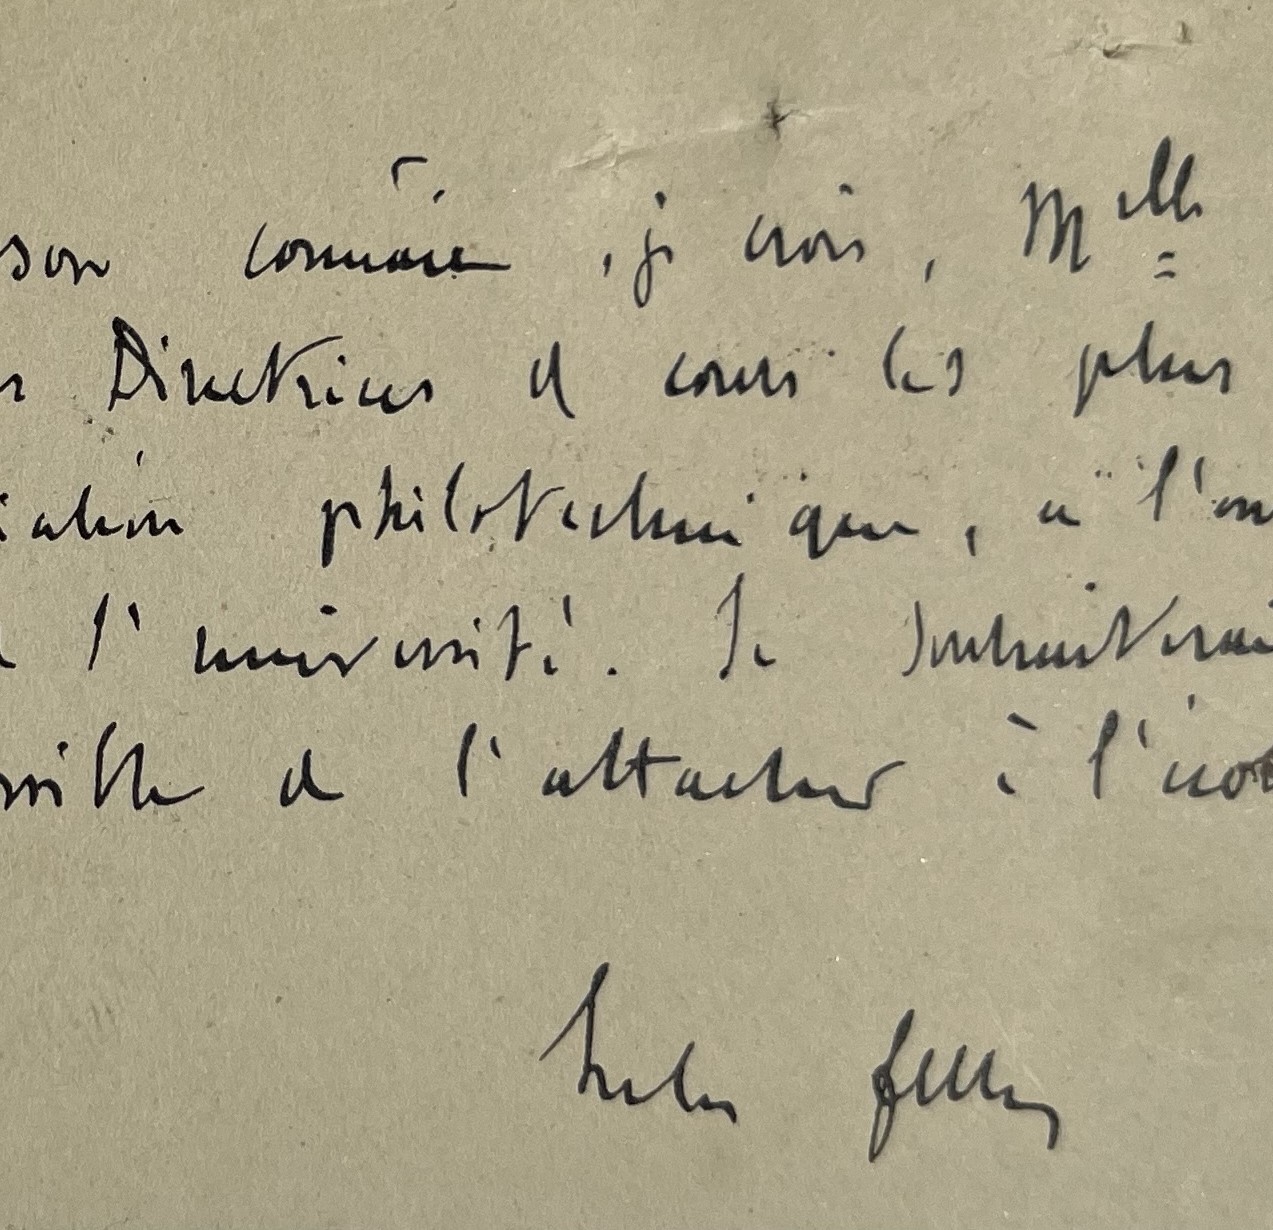 son connaît, je crois, Melle
Directrices de cours les plus
iation philotechnique, à l'
l'université. Je souhaiterai
ssible de l'attacher à l'
Jules Ferry